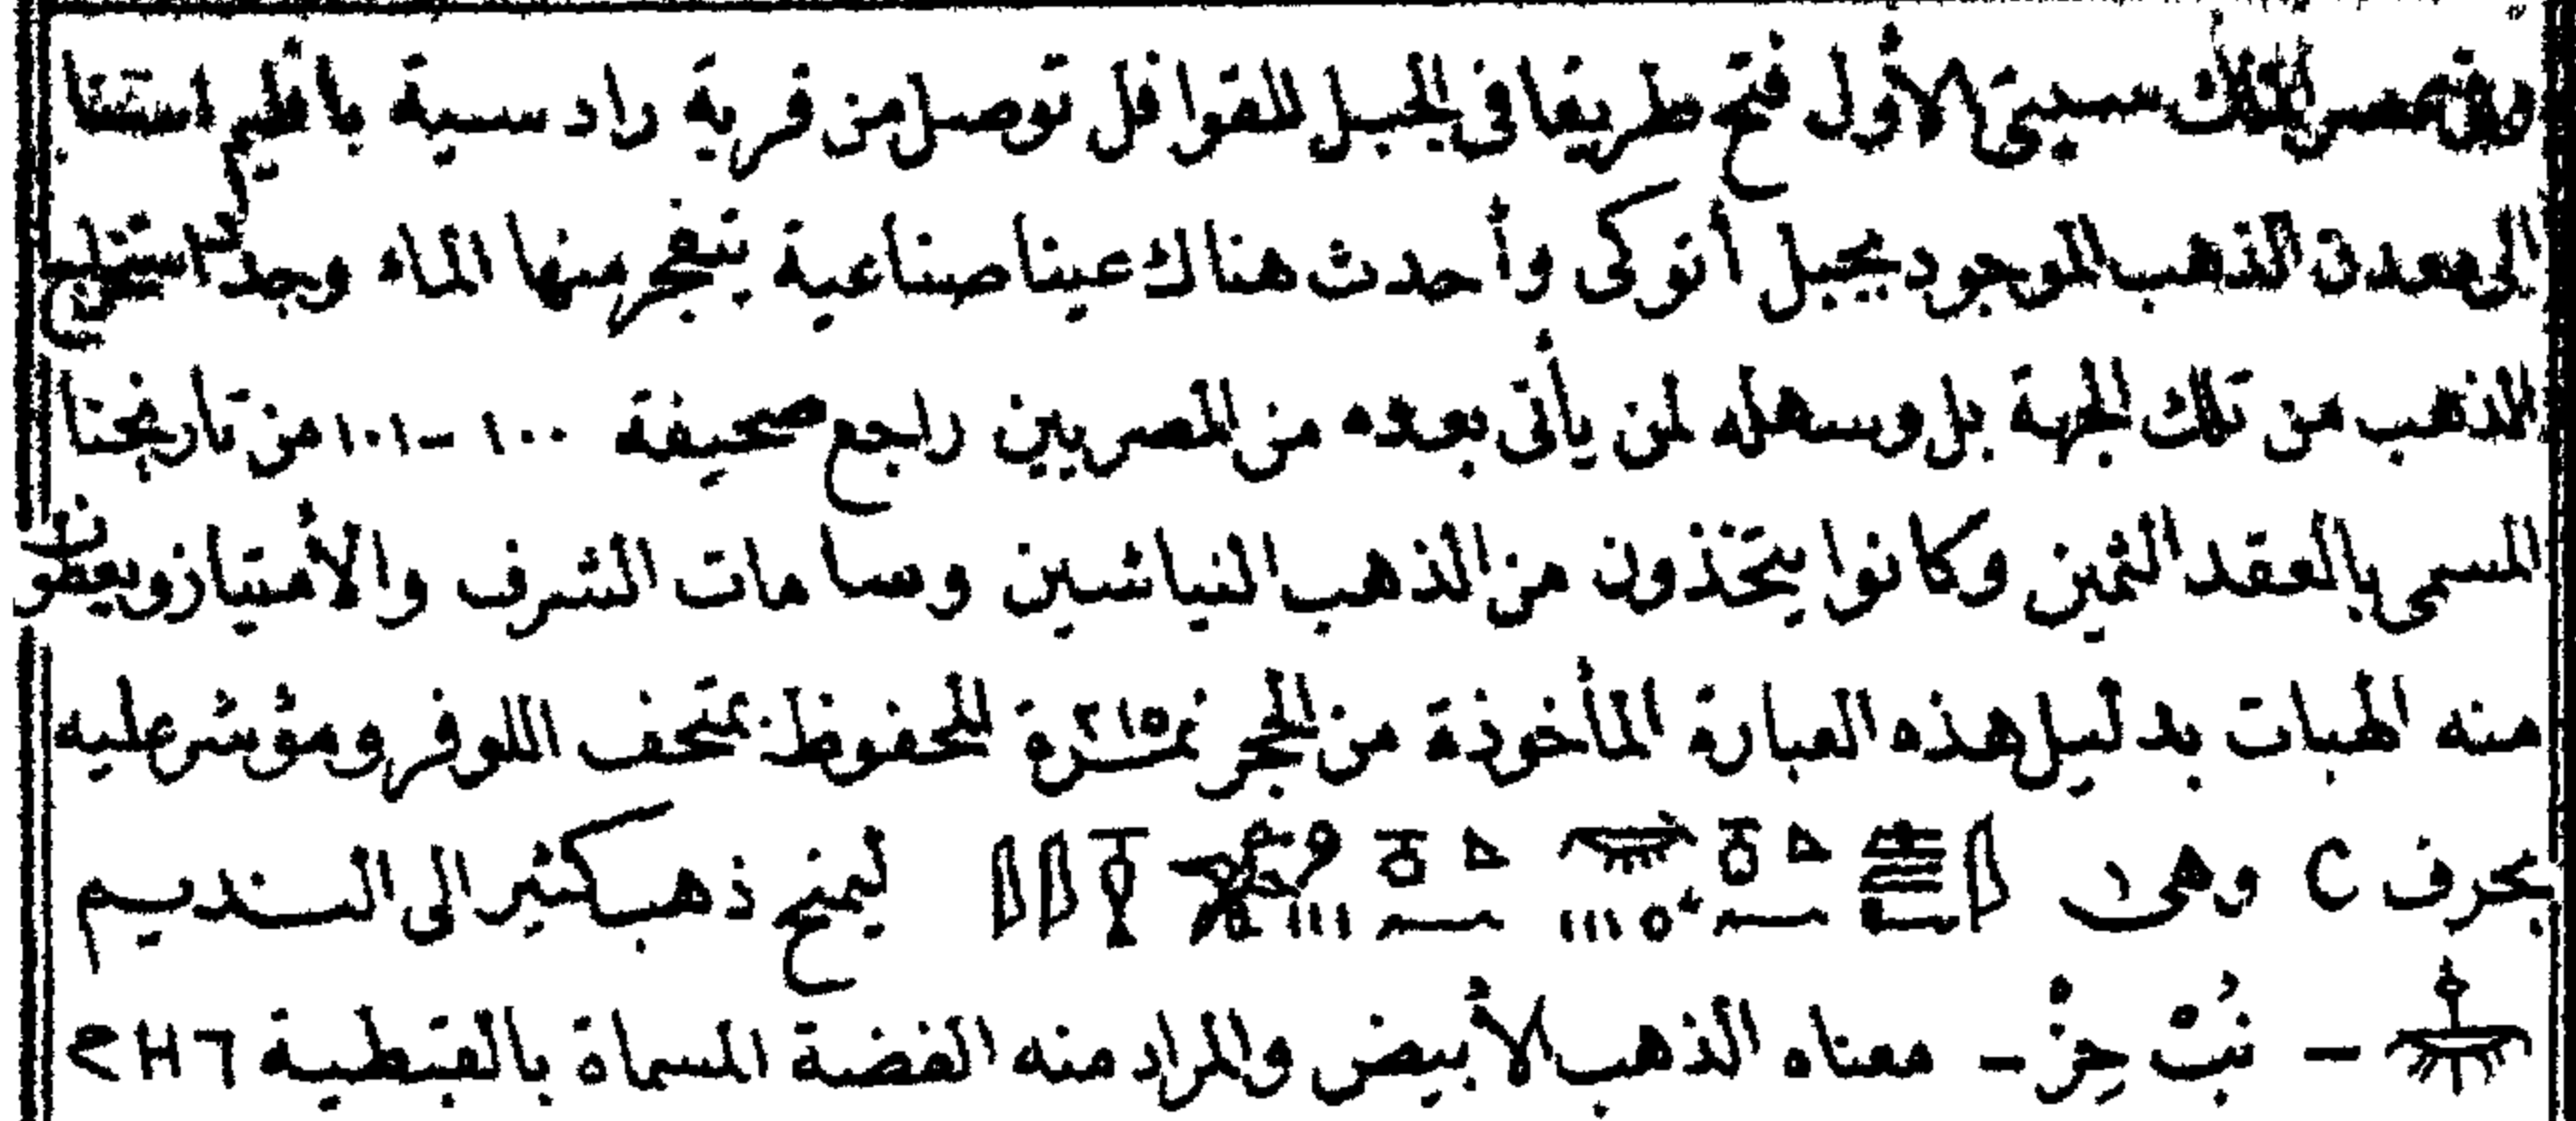 الملك سيتى الأول فتح طريقا فى الجبل للقوافل توصل من قرية رادسية باقليم اسنا
الى معدن الذهب الموجود بجبل أتوكى وأحدث هناك عينا صناعية ينفجر منها الماء وجد
الذهب من تلك الجهة بل وسهله لمن يأتى بعده من المصريين راجع صحيفة ١٠٠-١٠١ من تاريخنا
المسمى بالعقد الثمين وكانوا يتخذون من الذهب النياشين وسامات الشرف والأمتياز ويعطون
منه الهبات بدليل هذه العبارة المأخوذة من الحجر نمرة المحفوظ بمتحف اللوفر ومؤشر عليه
بحرف C وهى ليمنح ذهب كثير الى النديم
– نُبْ حِزْ – معناه الذهب الأبيض والمراد منه الفضة المسماة بالقبطية